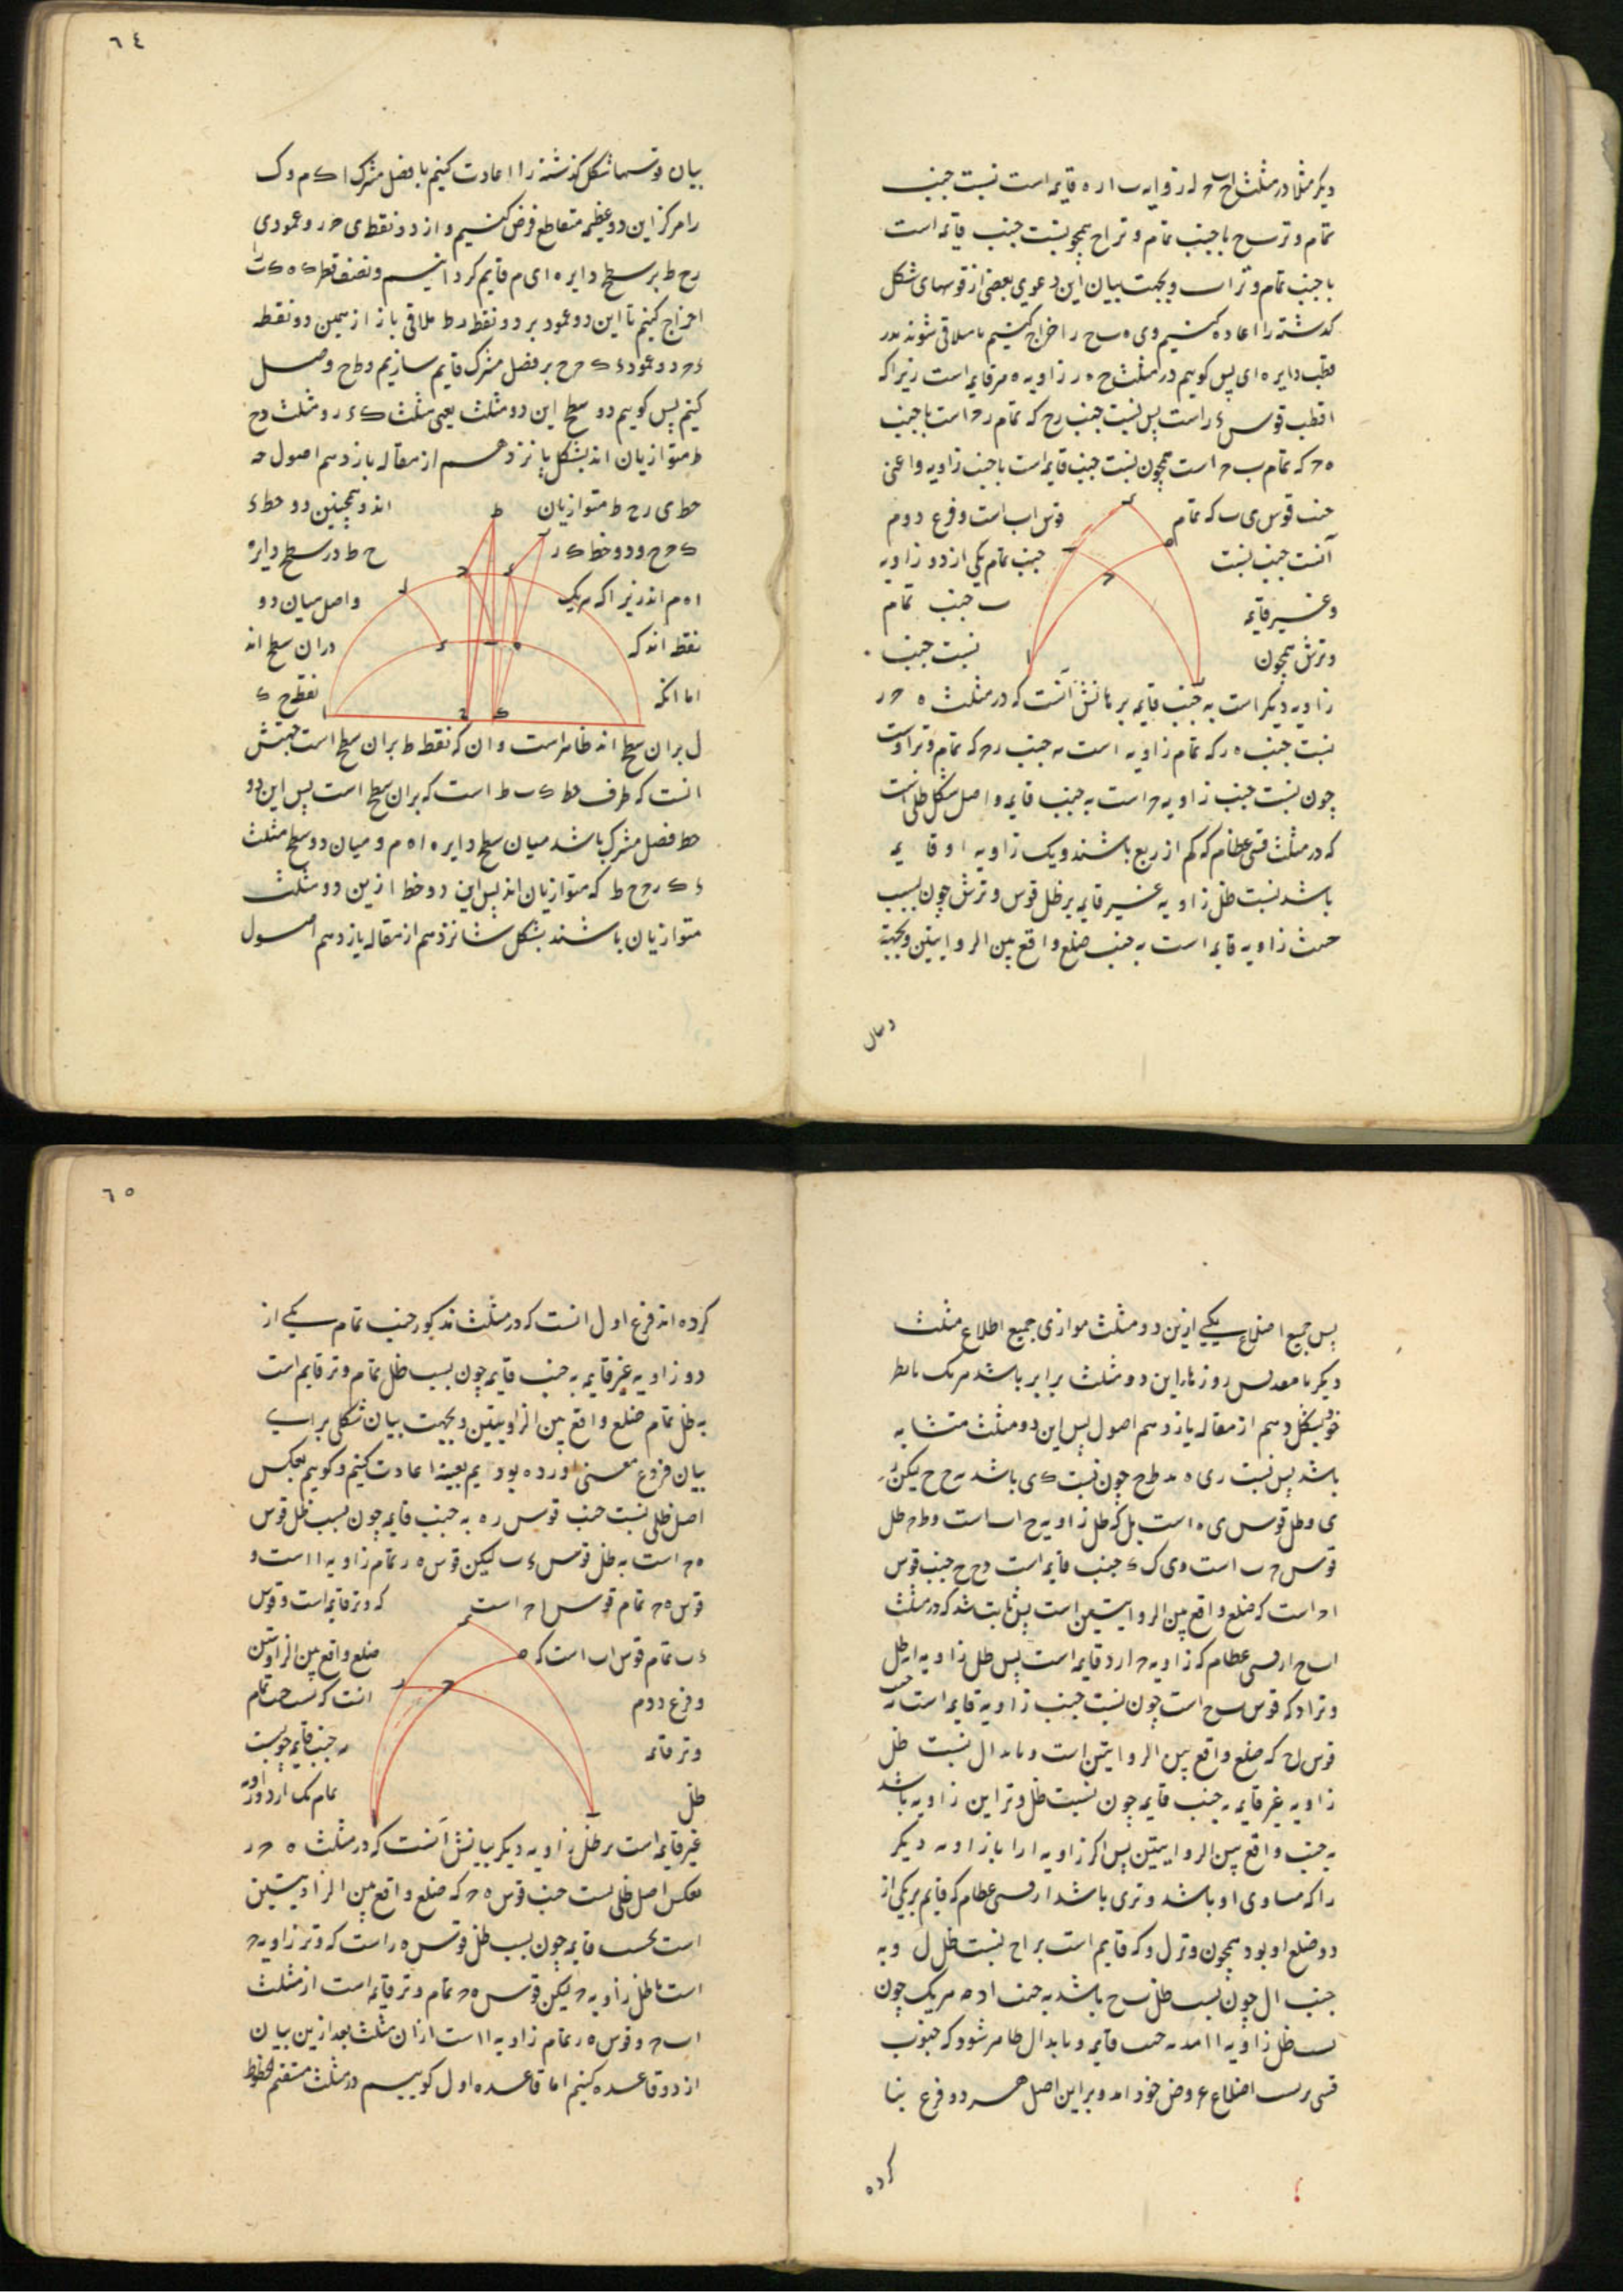 دیگر مثلا در مثلث اب ح که زاویه ب از ه قایمه است نسبت جیب
تمام وتر ب ح با جیب تمام وتر اح همچو نسبت جیب قایمه است
با جیب تمام وتر اب و بجهت بیان این دعوی بعضی از قوسهای شکل
گذشته را اعاده کنیم و ی ه ب ح را اخراج کنیم تا ملاقی شوند بر ر
قطب دایره ای پس گوییم در مثلث ح ه ر زاویه ه مر قایمه است زیرا که
ا قطب قوس ء ر است پس نسبت جیب رح که تمام رح است با جیب
ه ح که تمام ب ح است همچون نسبت جیب قایمه است با جیب زاویه و اعنی
جیب قوس ی ب که تمام قوس اب است و فرع دوم
آنست جیب نسبت جیب تمام یکی از دو زاویه
و غیر قایمه ب جیب تمام
وترش همچون نسبت جیب
زاویه دیگر است به جیب قایمه برهانش آنست که در مثلث ه ح ر
نسبت جیب ه ر که تمام زاویه است به جیب رح که تمام وتر اوست
چون نسبت جیب زاویه ح است به جیب قایمه و اصل شکل ظلی است
که در مثلث قسی عظام که کم از ربع باشند و یک زاویه او قایمه
باشد نسبت ظل زاویه غیر قایمه بر ظل قوس وترش چون نسبت
جیب زاویه قایمه است به جیب ضلع واقع بین الزاویتین و بجهة
و بیان
٦٤
بیان قوسها شکل گذشته را اعادت کنیم با فصل مشترک ا ک م و ک
را مرکز این دو عظیمه متقاطع فرض کنیم و از دو نقطه ی ح ر و عمودی
رح ط بر سطح دایره ای م قایم گردانیم و نصف قطر ک ه ک ب
اخراج کنیم تا این دو عمود بر دو نقطه ر ط ملاقی باز از همین دو نقطه
ء ح دو عمود ء ک ح ح بر فصل مشترک قایم سازیم و ط ح وصل
کنیم پس گوییم دو سطح این دو مثلث یعنی مثلث ک ء ر و مثلث ح ح
ط متوازیان اند بشکل پانزدهم از مقاله یازدهم اصول چه
خط ی ر ح ط متوازیان اند و همچنین دو خط ء
ک ح ح و دو خط ک ر ح ط در سطح دایره
ا ه م اند زیرا که هر یک واصل میان دو
نقطه اند که در ان سطح اند
اما انکه نقطه ح ک
ل بران سطح اند ظاهر است و ان که نقطه ط بران سطح است جهتش
انست که طرف خط ک ب ط است که بران سطح است پس این دو
خط فصل مشترک باشد میان سطح دایره ا ه م و میان دو سطح مثلث
ء ک ر ح ح ط که متوازیان اند پس این دو خط ازین دو مثلث
متوازیان باشند بشکل شانزدهم از مقاله یازدهم اصول
پس جمیع اضلاع یکی ازین دو مثلث موازی جمیع اضلاع مثلث
دیگر باشد پس زوایای این دو مثلث برابر باشد هر یک با نظیر
خود بشکل دهم از مقاله یازدهم اصول پس این دو مثلث متشابه
باشد پس نسبت ر ی به ط ح چون نسبت ک ی باشد به ح ح لیکن ر
ی و ظل قوس ی ه است بل که ظل زاویه ح اب است و ط ح ظل
قوس ح ب است و ی ک ء جیب قایمه است و ح ح جیب قوس
اح است که ضلع واقع بین الزاویتین است پس ثابت شد که در مثلث
اب ح از قسی عظام که زاویه ح از و قایمه است پس ظل زاویه ا به ظل
وتر او که قوس ب ح است چون نسبت جیب زاویه قایمه است به جیب
قوس اح که ضلع واقع بین الزاویتین است و بابدال نسبت ظل
زاویه غیر قایمه به جیب قایمه چون نسبت ظل وتر این زاویه باشد
به جیب واقع بین الزاویتین پس اگر زاویه ا را با زاویه دیگر
را که مساوی او باشد وتری باشد از قسی عظام که قایم بر یکی از
دو ضلع او بود همچون وتر ل و که قایم است بر اح نسبت ظل ل و به
جیب ال چون نسبت ظل ب ح باشد به جیب اح هر یک چون
نسبت ظل زاویه ا امد به جیب قایمه و بابدال ظاهر شود که جیوب
قسی بر نسبت اضلاع عروض خود اند و براین اصل هر دو فرع بنا
کرده
٦٥
کرده اند فرع اول انست که در مثلث مذکور جیب تمام یکی از
دو زاویه غیر قایمه به جیب قایمه چون نسبت ظل تمام وتر قایم است
به ظل تمام ضلع واقع بین الزاویتین و بجهت بیان شکلی برای
بیان فروع مغنی اورده بودیم بعینه اعادت کنیم و گوییم بعکس
اصل ظلی نسبت جیب قوس ر ه به جیب قایمه چون نسبت ظل قوس
ه ح است به ظل قوس ء ب لیکن قوس ه ر تمام زاویه ا است و
قوس ه ح تمام قوس اح است که وتر قایمه است و قوس
ء ب تمام قوس اب است که ضلع واقع بین الزاویتین
و فرع دوم انست که نسبت جیب تمام
وتر قایمه به جیب قایمه چون نسبت
ظل تمام یک از دو زاویه
غیر قایمه است بر ظل زاویه دیگر بیانش آنست که در مثلث ه ح ر
بعکس اصل ظلی نسبت جیب قوس ه ح که ضلع واقع بین الزاویتین
است بجیب قایمه چون نسبت ظل قوس ه ر است که وتر زاویه ح
است با ظل زاویه ح لیکن قوس ه ح تمام وتر قایمه است از مثلث
اب ح و قوس ه ر تمام زاویه ا است ازان مثلث بعد ازین بیان
از دو قاعده کنیم اما قاعده اول گوییم در مثلث مستقیم الخطوط